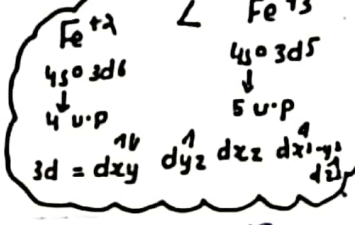 Fe+2 < Fe+3
4s0 3d6 4s0 3d5
↓ ↓
4 u.p 5 u.p
3d = dxy dyz dxz dx²-y²
dz²